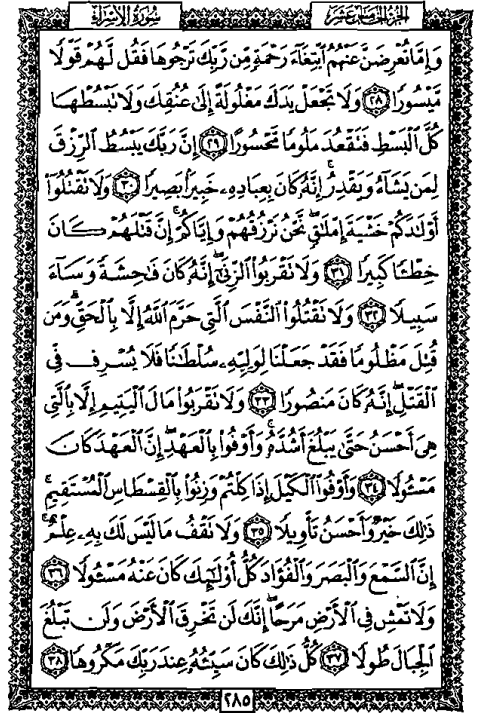 سُورَةُ الْإِسْرَاءِ
الجُزْءُ الخَامِسَ عَشَرَ
وَإِمَّا تُعْرِضَنَّ عَنْهُمُ ٱبْتِغَآءَ رَحْمَةٍ مِّن رَّبِّكَ تَرْجُوهَا فَقُل لَّهُمْ قَوْلًا
مَّيْسُورًا ٢٨ وَلَا تَجْعَلْ يَدَكَ مَغْلُولَةً إِلَىٰ عُنُقِكَ وَلَا تَبْسُطْهَا
كُلَّ ٱلْبَسْطِ فَتَقْعُدَ مَلُومًا مَّحْسُورًا ٢٩ إِنَّ رَبَّكَ يَبْسُطُ ٱلرِّزْقَ
لِمَن يَشَآءُ وَيَقْدِرُ ۚ إِنَّهُۥ كَانَ بِعِبَادِهِۦ خَبِيرًۢا بَصِيرًا ٣٠ وَلَا تَقْتُلُوٓا۟
أَوْلَـٰدَكُمْ خَشْيَةَ إِمْلَـٰقٍ ۖ نَّحْنُ نَرْزُقُهُمْ وَإِيَّاكُمْ ۚ إِنَّ قَتْلَهُمْ كَانَ
خِطْـًٔا كَبِيرًا ٣١ وَلَا تَقْرَبُوا۟ ٱلزِّنَىٰٓ ۖ إِنَّهُۥ كَانَ فَـٰحِشَةً وَسَآءَ
سَبِيلًا ٣٢ وَلَا تَقْتُلُوا۟ ٱلنَّفْسَ ٱلَّتِى حَرَّمَ ٱللَّهُ إِلَّا بِٱلْحَقِّ ۗ وَمَن
قُتِلَ مَظْلُومًا فَقَدْ جَعَلْنَا لِوَلِيِّهِۦ سُلْطَـٰنًا فَلَا يُسْرِف فِّى
ٱلْقَتْلِ ۖ إِنَّهُۥ كَانَ مَنصُورًا ٣٣ وَلَا تَقْرَبُوا۟ مَالَ ٱلْيَتِيمِ إِلَّا بِٱلَّتِى
هِىَ أَحْسَنُ حَتَّىٰ يَبْلُغَ أَشُدَّهُۥ ۚ وَأَوْفُوا۟ بِٱلْعَهْدِ ۖ إِنَّ ٱلْعَهْدَ كَانَ
مَسْـُٔولًا ٣٤ وَأَوْفُوا۟ ٱلْكَيْلَ إِذَا كِلْتُمْ وَزِنُوا۟ بِٱلْقِسْطَاسِ ٱلْمُسْتَقِيمِ ۚ
ذَٰلِكَ خَيْرٌ وَأَحْسَنُ تَأْوِيلًا ٣٥ وَلَا تَقْفُ مَا لَيْسَ لَكَ بِهِۦ عِلْمٌ ۚ
إِنَّ ٱلسَّمْعَ وَٱلْبَصَرَ وَٱلْفُؤَادَ كُلُّ أُو۟لَـٰٓئِكَ كَانَ عَنْهُ مَسْـُٔولًا ٣٦
وَلَا تَمْشِ فِى ٱلْأَرْضِ مَرَحًا ۖ إِنَّكَ لَن تَخْرِقَ ٱلْأَرْضَ وَلَن تَبْلُغَ
ٱلْجِبَالَ طُولًا ٣٧ كُلُّ ذَٰلِكَ كَانَ سَيِّئُهُۥ عِندَ رَبِّكَ مَكْرُوهًا ٣٨
٢٨٥